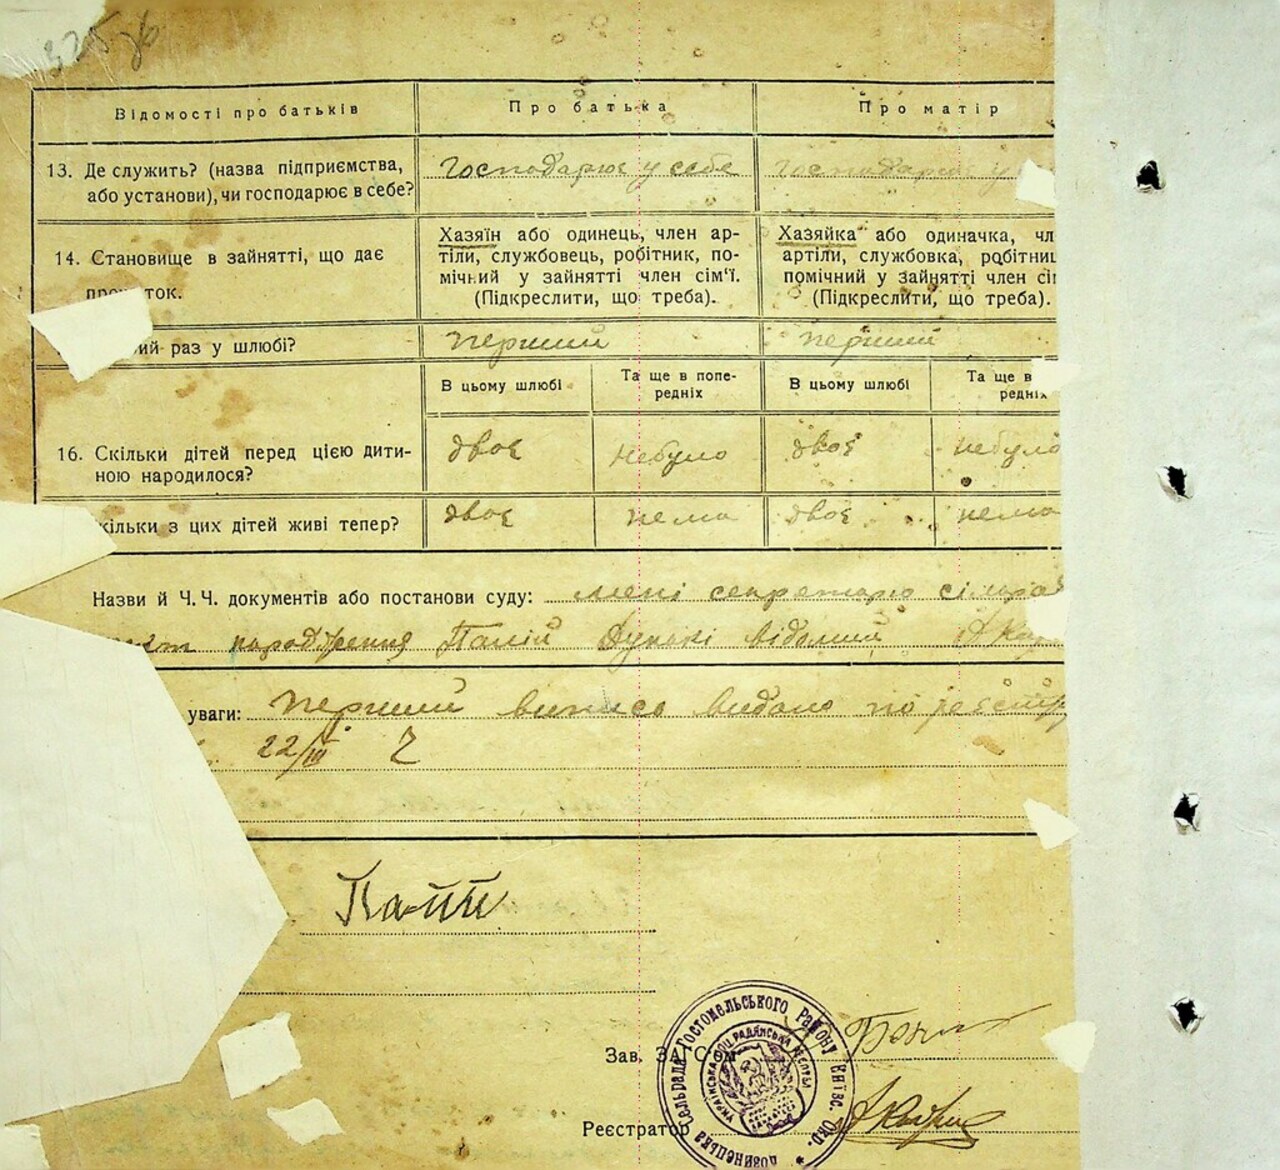 325 зв
Відомості про батьків
Про батька
Про матір
13. Де служить? (назва підприємства, або установи), чи господарює в себе?
Господарює у себе
Господарює у
14. Становище в зайнятті, що дає
ток.
Хазяїн або одинець, член ар-
тіли, службовець, робітник, по-
мічний у зайнятті член сім'ї.
(Підкреслити, що треба).
Хазяйка або одиначка, чл
артіли, службовка, робітниц
помічний у зайнятті член сі
(Підкреслити, що треба).
ий раз у шлюбі?
перший
перший
В цьому шлюбі
Та ще в попе-
редніх
В цьому шлюбі
Та ще в
редніх
16. Скільки дітей перед цією дити-
ною народилося?
двоє
небуло
двоє
небуло
кільки з цих дітей живі тепер?
двоє
нема
двоє
нема
Назви й Ч.Ч. документів або постанови суду: мені секретарю сільра
народження Палій відомий
уваги: перший випис видано по реєстр
22/III
Палій
Зав. ЗАГСом
Реєстратор
Сельрада Гостомельського Району Київс. Окр.